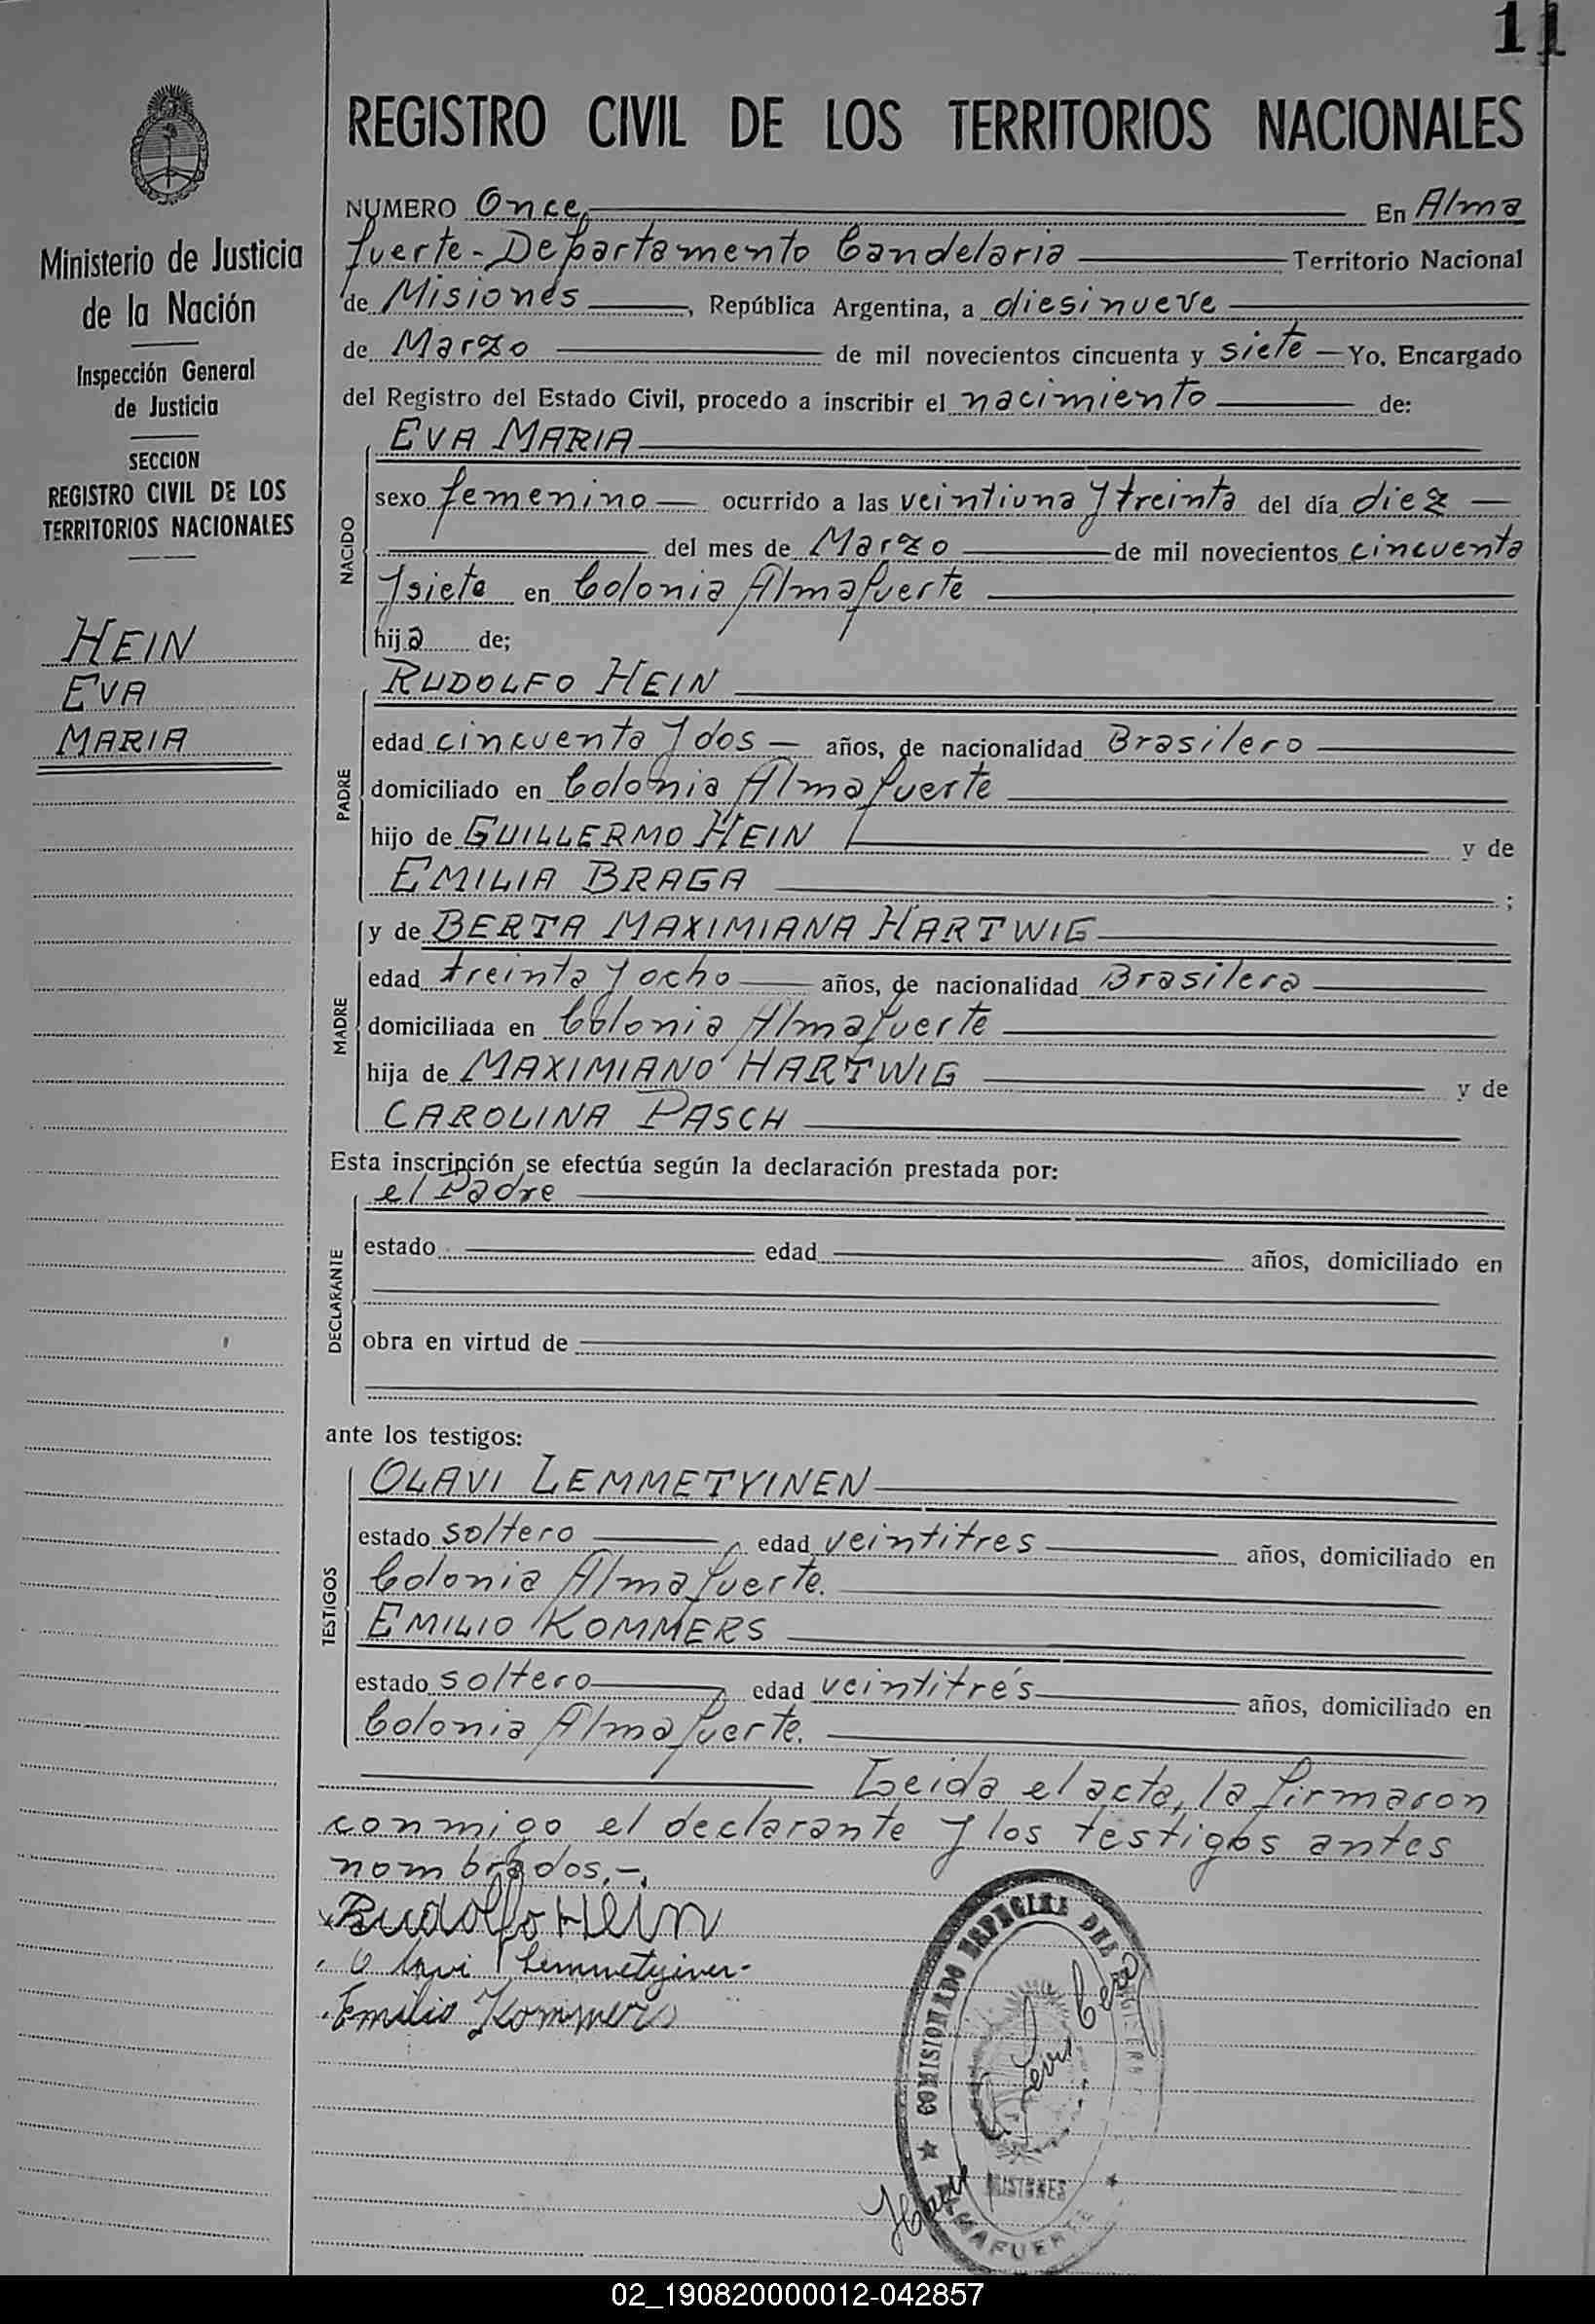 11
REGISTRO CIVIL DE LOS TERRITORIOS NACIONALES
Ministerio de Justicia
de la Nación
Inspección General
de Justicia
SECCION
REGISTRO CIVIL DE LOS
TERRITORIOS NACIONALES
HEIN
EVA
MARIA
NUMERO Once, En Alma
fuerte - Departamento Candelaria Territorio Nacional
de Misiones, República Argentina, a diesinueve
de Marzo de mil novecientos cincuenta y siete — Yo, Encargado
del Registro del Estado Civil, procedo a inscribir el nacimiento de:
NACIDO
EVA MARIA
sexo femenino — ocurrido a las veintiuna y treinta del día diez —
del mes de Marzo de mil novecientos cincuenta
y siete en Colonia Almafuerte
hija de;
PADRE
RUDOLFO HEIN
edad cincuenta y dos — años, de nacionalidad Brasilero
domiciliado en Colonia Almafuerte
hijo de GUILLERMO HEIN y de
EMILIA BRAGA ;
MADRE
y de BERTA MAXIMIANA HARTWIG
edad treinta y ocho años, de nacionalidad Brasilera
domiciliada en Colonia Almafuerte
hija de MAXIMIANO HARTWIG y de
CAROLINA PASCH
Esta inscripción se efectúa según la declaración prestada por:
DECLARANTE
el Padre
estado edad años, domiciliado en
obra en virtud de
ante los testigos:
TESTIGOS
OLAVI LEMMETYINEN
estado soltero edad veintitres años, domiciliado en
Colonia Almafuerte.
EMILIO KOMMERS
estado soltero edad veintitrés años, domiciliado en
Colonia Almafuerte.
Leida el acta, la firmaron
conmigo el declarante y los testigos antes
nombrados.-.
Rudolfo Hein
Olavi Lemmetyinen
Emilio Kommers
COMISIONADO ESPECIAL DEL
MISIONES
ALMAFUERTE
02_190820000012-042857